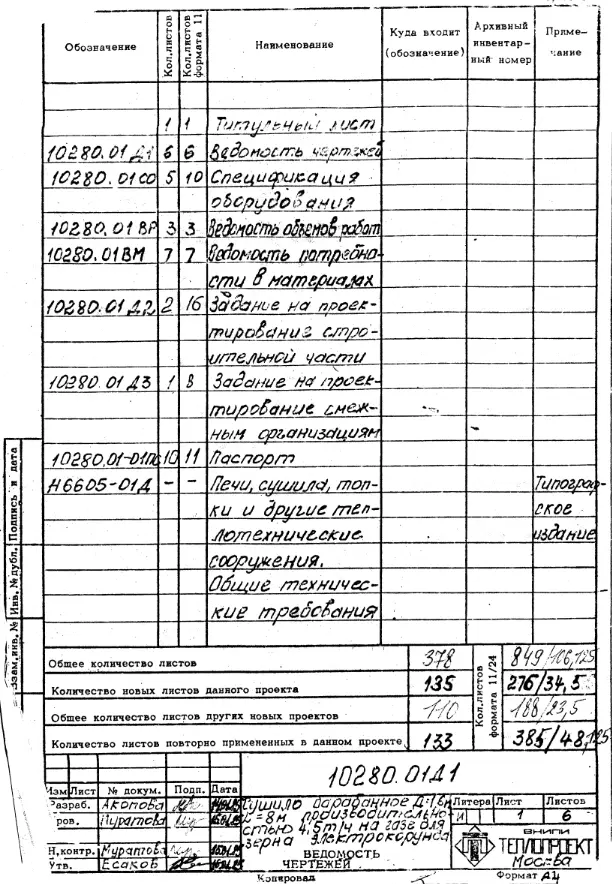 Обозначение
Кол.листов
Кол.листов формата 11
Наименование
Куда входит (обозначение)
Архивный инвентарный номер
Приме-
чание
1 1 Титульный лист
10280.01 Д1 6 6 Ведомость чертежей
10280.01СО 5 10 Спецификация
оборудования
10280.01 ВР 3 3 Ведомость объемов работ
10280.01ВМ 7 7 Ведомость потребно-
сти в материалах
10280.01 Д2 2 16 Задание на проек-
тирование стро-
ительной части
10280.01 Д3 1 8 Задание на проек-
тирование смеж-
ным организациям
10280.01-01ПС 10 11 Паспорт
Н6605-01Д – – Печи, сушила, топ- Типограф-
ки и другие теп- ское
лотехнические издание
сооружения.
Общие техничес-
кие требования
Общее количество листов 378 849/106,125
Количество новых листов данного проекта 135 276/34,5
Общее количество листов других новых проектов 110 188/23,5
Количество листов повторно примененных в данном проекте 133 385/48,125
Кол.листов формата 11/24
Взам.инв. № Инв. № дубл. Подпись и дата
10280.01Д1
Изм Лист № докум. Подп. Дата
Разраб. Акопова
Пров. Муратова
Н.контр. Муратова
Утв. Есаков
Сушило барабанное Д-1,6м
L=8м производительно-
стью 4,5т/ч на газе для
зерна электрокорунда
ВЕДОМОСТЬ
ЧЕРТЕЖЕЙ
Литера Лист Листов
И 1 6
ВНИПИ
ТЕПЛОПРОЕКТ
Москва
Копировал Формат А4